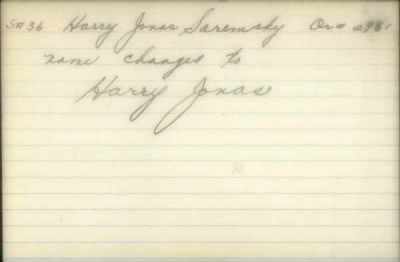 S#36 Harry Jonas Saremsky Or#
name changes to
Harry Jonas